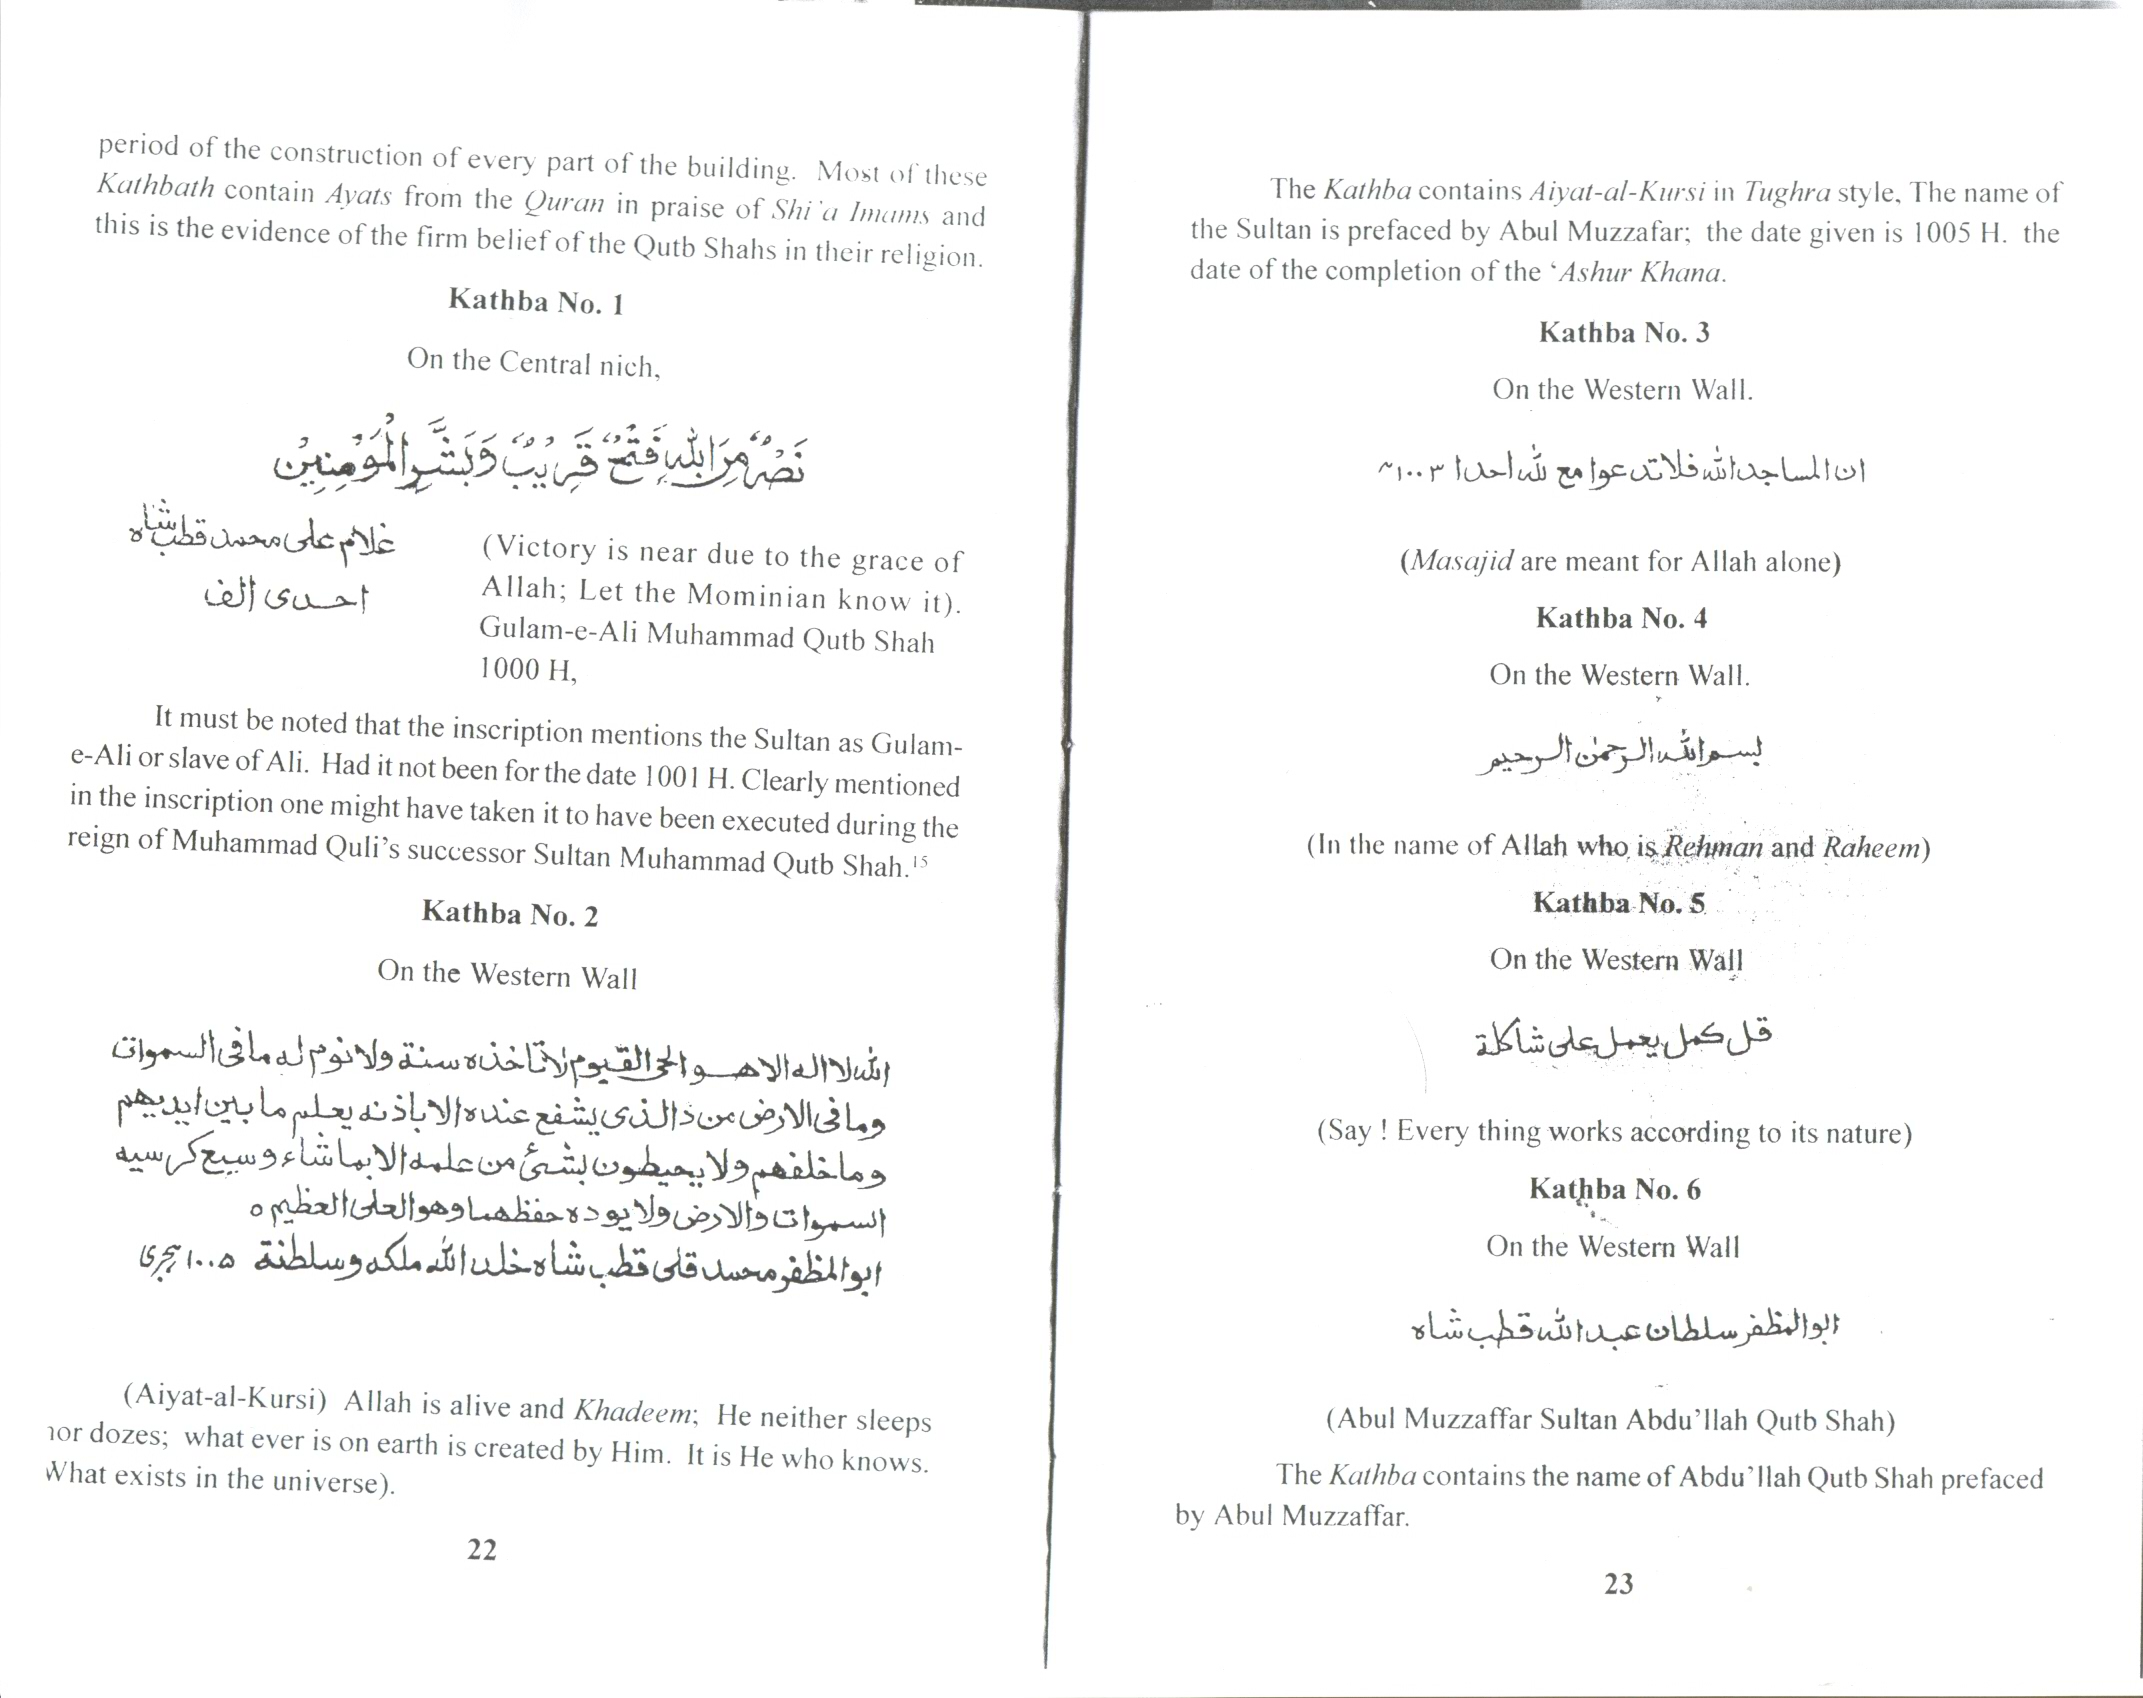 period of the construction of every part of the building. Most of these
Kathbath contain Ayats from the Quran in praise of Shi'a Imams and
this is the evidence of the firm belief of the Qutb Shahs in their religion.
Kathba No. 1
On the Central nich,
نَصْرٌ مِّنَ اللهِ فَتْحٌ قَرِيْبٌ وَبَشِّرِ الْمُؤْمِنِيْنَ
غلام علی محمد قطب شاه
احدی الف
(Victory is near due to the grace of
Allah; Let the Mominian know it).
Gulam-e-Ali Muhammad Qutb Shah
1000 H,
It must be noted that the inscription mentions the Sultan as Gulam-
e-Ali or slave of Ali. Had it not been for the date 1001 H. Clearly mentioned
in the inscription one might have taken it to have been executed during the
reign of Muhammad Quli's successor Sultan Muhammad Qutb Shah.15
Kathba No. 2
On the Western Wall
الله لا اله الا هو الحی القیوم لا تاخذه سنة ولا نوم له ما فی السموات
وما فی الارض من ذالذی یشفع عنده الا باذنه یعلم ما بین ایدیهم
وما خلفهم ولا یحیطون بشئ من علمه الا بماشاء وسیع کرسیه
السموات والارض ولا یوده حفظهما وهو العلی العظیم ه
ابوالمظفر محمد قلی قطب شاه خلد الله ملکه وسلطنة ۱۰۰۵ ہجری
(Aiyat-al-Kursi) Allah is alive and Khadeem; He neither sleeps
nor dozes; what ever is on earth is created by Him. It is He who knows.
What exists in the universe).
22
The Kathba contains Aiyat-al-Kursi in Tughra style, The name of
the Sultan is prefaced by Abul Muzzafar; the date given is 1005 H. the
date of the completion of the 'Ashur Khana.
Kathba No. 3
On the Western Wall.
ان المساجد الله فلا تدعوا مع لله احدا ۱۰۰۳
(Masajid are meant for Allah alone)
Kathba No. 4
On the Western Wall.
بسم الله الرحمن الرحیم
(In the name of Allah who is Rehman and Raheem)
Kathba No. 5
On the Western Wall
قل کمل یعمل علی شاکلة
(Say ! Every thing works according to its nature)
Kathba No. 6
On the Western Wall
ابوالمظفر سلطان عبدالله قطب شاه
(Abul Muzzaffar Sultan Abdu'llah Qutb Shah)
The Kathba contains the name of Abdu'llah Qutb Shah prefaced
by Abul Muzzaffar.
23